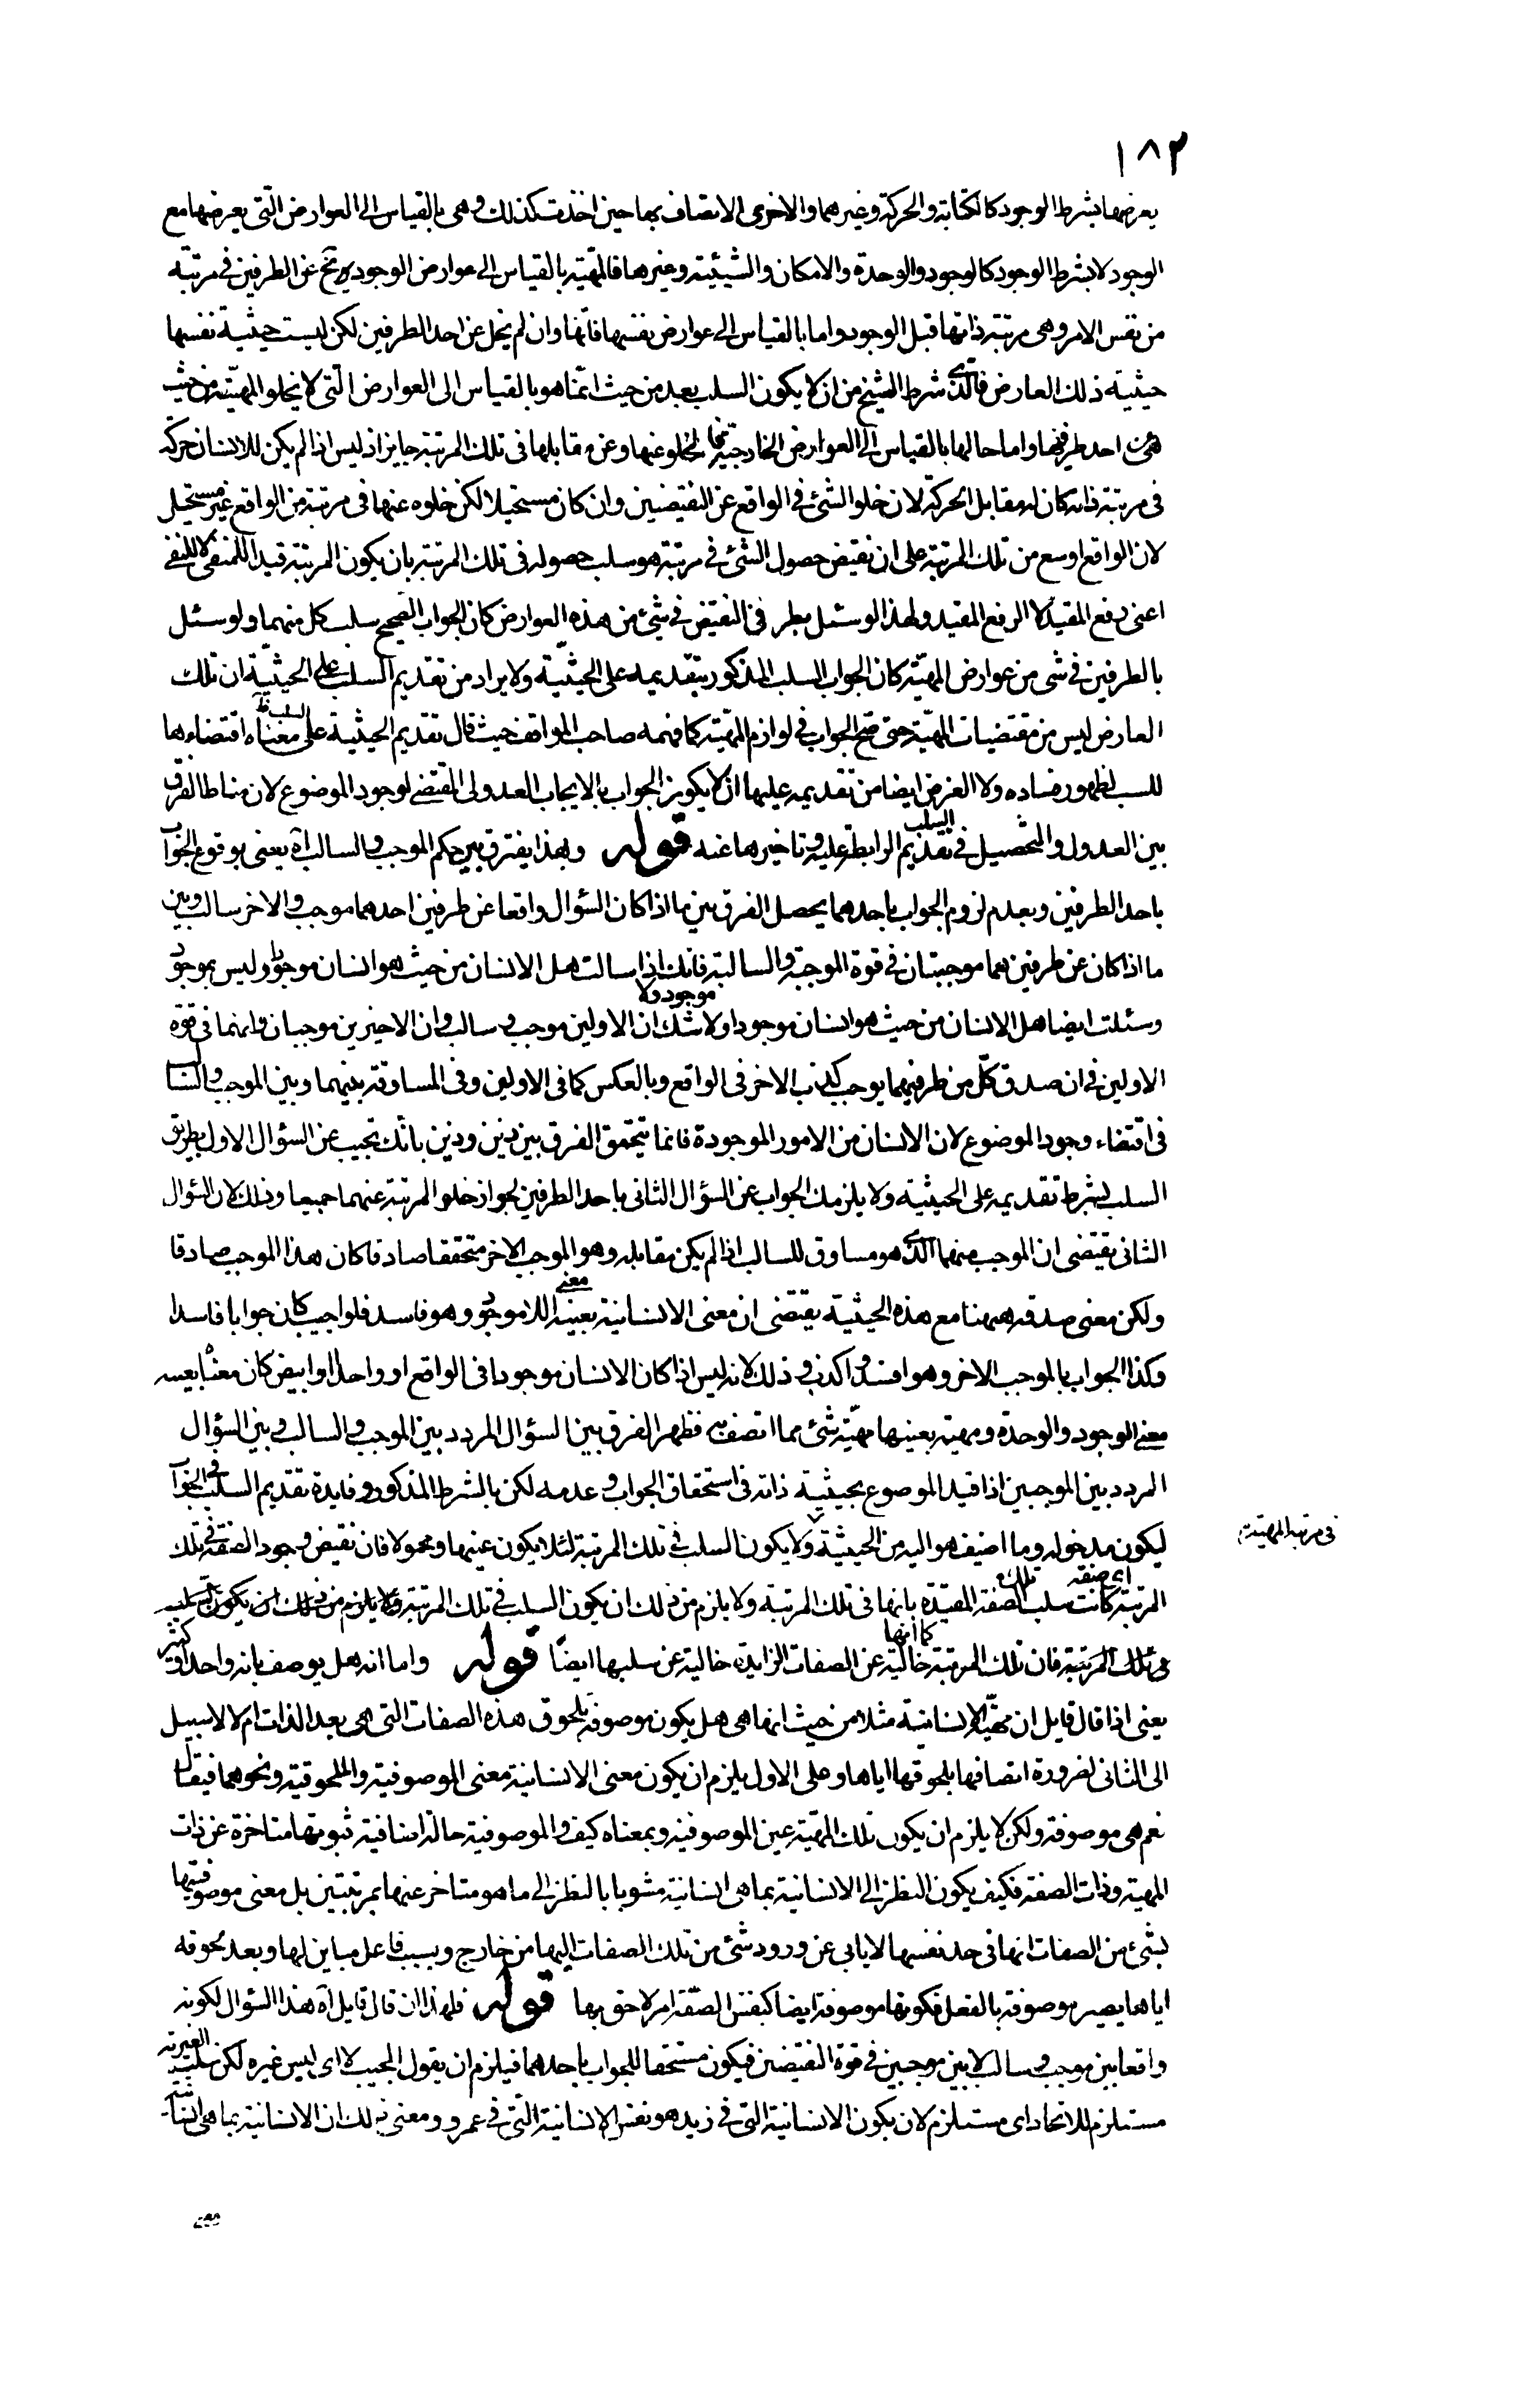 ١٨٣
يعرضها بشرط الوجود كالكتابة والحركة وغيرهما والاخرى الاتصاف بها حين اخذت كذلك وهى بالقياس الى العوارض التى يعرضها مع
الوجود لا بشرط الوجود كالوجود والوحدة والامكان والشيئية وغيرها فالمهيّة بالقياس الى عوارض الوجود يخ عن الطرفين فى مرتبة
من نفس الامر وهى مرتبة ذاتها قبل الوجود واما بالقياس الى عوارض نفسها فانّها وان لم يخل عن احد الطرفين لكن ليست حيثية نفسها
حيثية ذلك العارض فالّذى شرط الشيخ من ان لا يكون السلب بعد من حيث انّما هو بالقياس الى العوارض الّتى لا يخلو المهيّة من حيث
هى عن احد طرفيها واما حالها بالقياس الى العوارض الخارجية فالخلو عنها وعن مقابلها فى تلك المرتبة جايز اذ ليس اذا لم يكن للانسان حركة
فى مرتبة ذاته كان له مقابل الحركة لان خلو الشئ فى الواقع عن النقيضين وان كان مستحيلا لكن خلوه عنها فى مرتبة من الواقع غير مستحيل
لان الواقع اوسع من تلك المرتبة على ان نقيض حصول الشئ فى مرتبة هو سلب حصوله فى تلك المرتبة بان يكون المرتبة قيدا للمنفى لا للنفى
اعنى رفع المقيد لا الرفع المقيد ولهذا لو سئل بطرفى النقيض فى شئ من هذه العوارض كان الجواب الصحيح سلب كل منهما ولو سئل
بالطرفين فى شى من عوارض المهيّة كان الجواب السلب المذكور بتقديمه على الحيثيّة ولا يراد من تقديم السلب على الحيثيّة ان تلك
العارض ليس من مقتضيات المهيّة حتى صح الجواب فى لوازم المهيّة كما فهمه صاحب المواقف حيث قال تقديم الحيثية على السلب معناه اقتضاءها
للسب لظهور فساده ولا الغرض ايضا من تقديمه عليها ان لا يكون الجواب بالايجاب العدولى المقتضى لوجود الموضوع لان مناط الفرق
بين العدول والتحصيل فى تقديم الرابطة على السلب وتاخيرها عنه قوله وبهذا يفترق بين حكم الموجب والسالب آه يعنى بوقوع الجواب
باحد الطرفين وبعدم لزوم الجواب باحدهما يحصل الفرق بين ما اذا كان السؤال واقعا عن طرفين احدهما موجب والاخر سالب وبين
ما اذا كان عن طرفين هما موجبتان فى قوة الموجبة والسالبة فانك اذا سالت هل الانسان من حيث هو انسان موجود وليس بموجود
وسئلت ايضا هل الانسان من حيث هو انسان موجود او لا موجود ولا شك ان الاولين موجب وسالب وان الاخيرين موجبان وانهما فى قوة
الاولين فى ان صدق كلّ من طرفيهما يوجب كذب الاخر فى الواقع وبالعكس كما فى الاولين وفى المساوقة بينهما وبين الموجب والسالب
فى اقتضاء وجود الموضوع لان الانسان من الامور الموجودة فانما يتحقق الفرق بين ذين وذين بانّك تجيب عن السؤال الاول بطريق
السلب بشرط تقديمه على الحيثية ولا يلزمك الجواب عن السؤال الثانى باحد الطرفين لجواز خلو المرتبة عنهما جميعا وذلك لان السؤال
الثانى يقتضى ان الموجب منهما الّذى هو مساوق للسالب اذا لم يكن مقابله وهو الموجب الاخر متحققا صادقا كان هذا الموجب صادقا
ولكن معنى صدقه ههنا مع هذه الحيثية يقتضى ان معنى الانسانية بعينه معنى اللاموجود وهو فاسد فلو اجيب كان جوابا فاسدا
وكذا الجواب بالموجب الاخر وهو افسد واكذب وذلك لانه ليس اذا كان الانسان موجودا فى الواقع او واحدا او ابيض كان معناه بعينه
معنى الوجود والوحدة ومهيته بعينها مهيّة شئ مما اتصف به فظهر الفرق بين السؤال المردد بين الموجب والسالب وبين السؤال
المردد بين الموجبين اذا قيد الموضوع بحيثية ذاته فى استحقاق الجواب وعدمه لكن بالشرط المذكور وفايدة تقديم السلب فى الجواب
ليكون مدخوله وما اضيف هو اليه من الحيثية ولا يكون السلب فى تلك المرتبة لئلا يكون عينها ومحمولا فان نقيض وجود الصفة فى تلك
فى مرتبة المهيّة
المرتبة كانت سلب تلك الصفة اى صفة المقيّدة بانها فى تلك المرتبة ولا يلزم من ذلك ان يكون السلب فى تلك المرتبة ولا يلزم من ذلك ان يكون السلب
فى تلك المرتبة فان تلك المرتبة كما انها خالية عن الصفات الزايدة خالية عن سلبها ايضًا قوله واما انه هل يوصف بانه واحد او كثير
يعنى اذا قال قايل ان مهيّة الانسانية مثلا من حيث انها هى هل يكون موصوفة بلحوق هذه الصفات التى هى بعد الذات ام لا لا سبيل
الى الثانى لضرورة اتصافها بلحوقها اياها وعلى الاول يلزم ان يكون معنى الانسانية معنى الموصوفية والملحوقية ونحوهما فيقال
نعم هى موصوفة ولكن لا يلزم ان يكون تلك المهيّة عين الموصوفية وبمعناه كيف والموصوفية حالة اضافية ثبوتها متاخرة عن ذات
المهية وذات الصفة فكيف يكون النظر الى الانسانية بما هى انسانية مشوبا بالنظر الى ما هو متاخر عنها بمرتبتين بل معنى موصوفيتها
بشئ من الصفات انها فى حد نفسها لا يابى عن ورود شئ من تلك الصفات اليها من خارج وبسبب فاعل مباين لها وبعد لحوقه
اياها يصير موصوفة بالفعل فكونها موصوفة ايضا كنفس الصّفة امر لاحق بها قوله فلهذا ان قال قايل آه هذا السؤال لكونه
واقعا بين موجب وسالب لا بين موجبين فى قوة النقيضين فيكون مستحقا للجواب باحدهما فيلزم ان يقول المجيب لا اى ليس غيره لكن سلب الغيرية
مستلزم للاتحاد اى مستلزم لان يكون الانسانية التى فى زيد هو نفس الانسانية الّتى فى عمرو ومعنى ذلك ان الانسانية بما هى انسانية